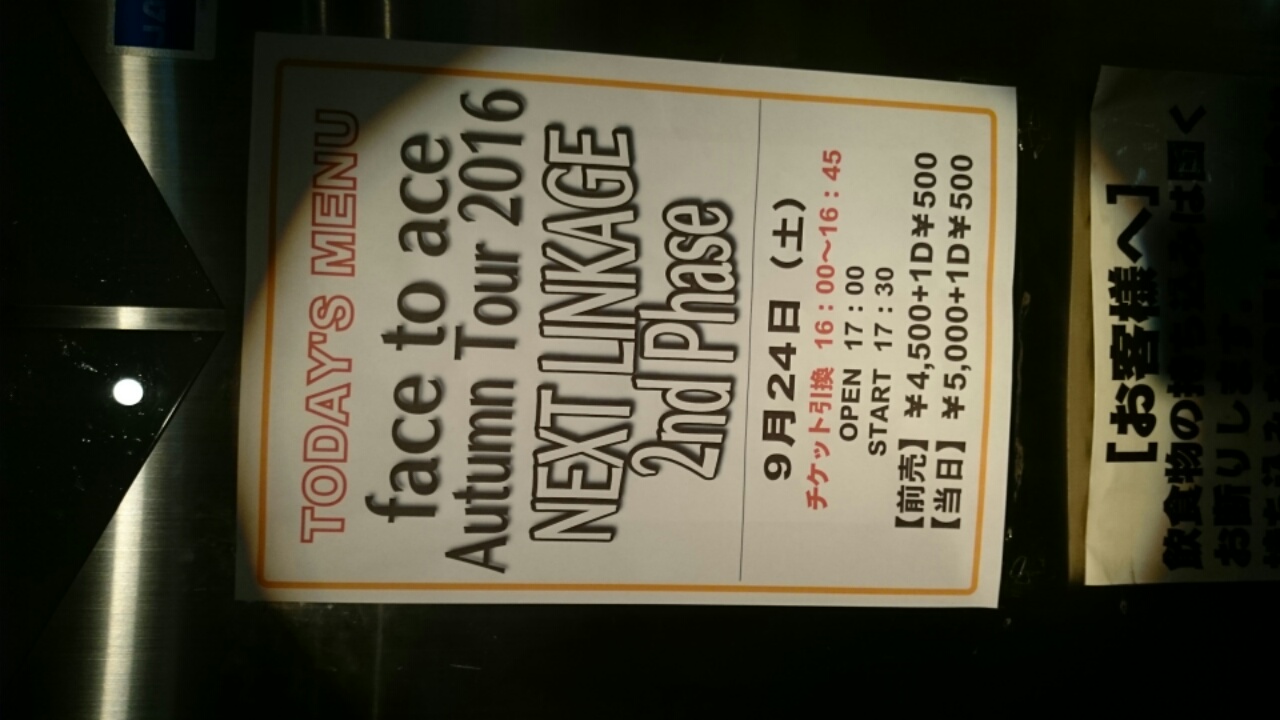 TODAY'S MENU
face to ace
Autumn Tour 2016
NEXT LINKAGE
2nd Phase
9月24日（土）
チケット引換 16：00～16：45
OPEN 17：00
START 17：30
【前売】￥4,500+1D￥500
【当日】￥5,000+1D￥500
【お客様へ】
飲食物の持ち込みは固く
お断りします。